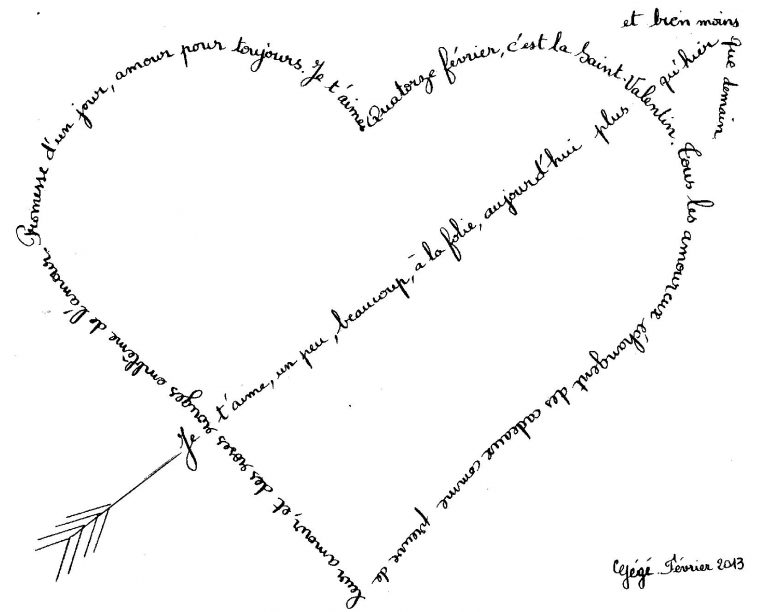 Quatorze février, c'est la Saint-Valentin. Tous les amoureux échangent des cadeaux comme preuve de
leur amour, et des roses rouges emblème de l'amour.
Promesse d'un jour, amour pour toujours. Je t'aime.
Je t'aime, un peu, beaucoup, à la folie, aujourd'hui plus qu'hier
et bien moins
que demain
Gégé Février 2013